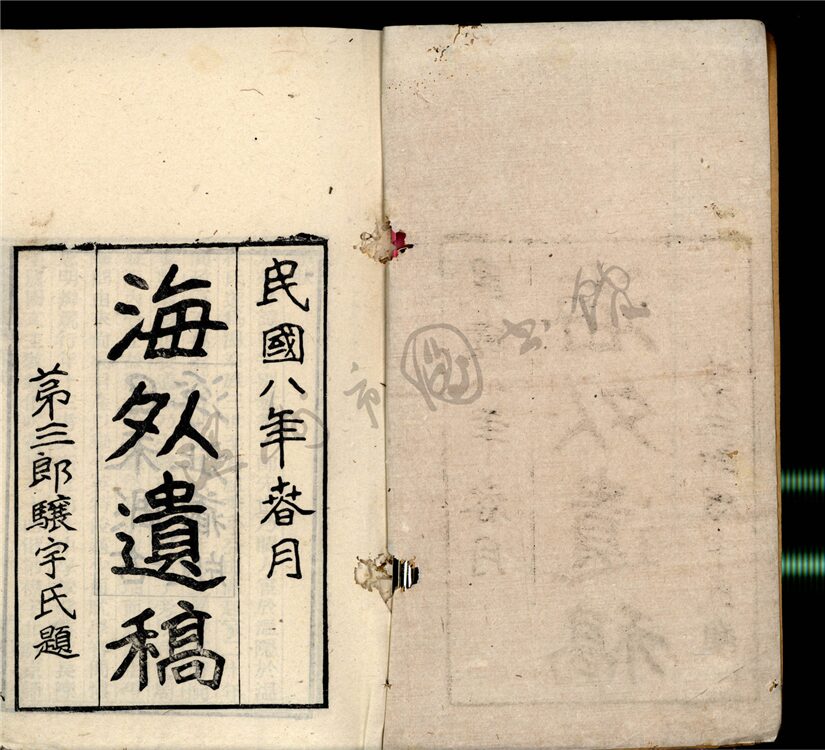 民國八年春月
海外遺稿
第三郎驤宇氏題